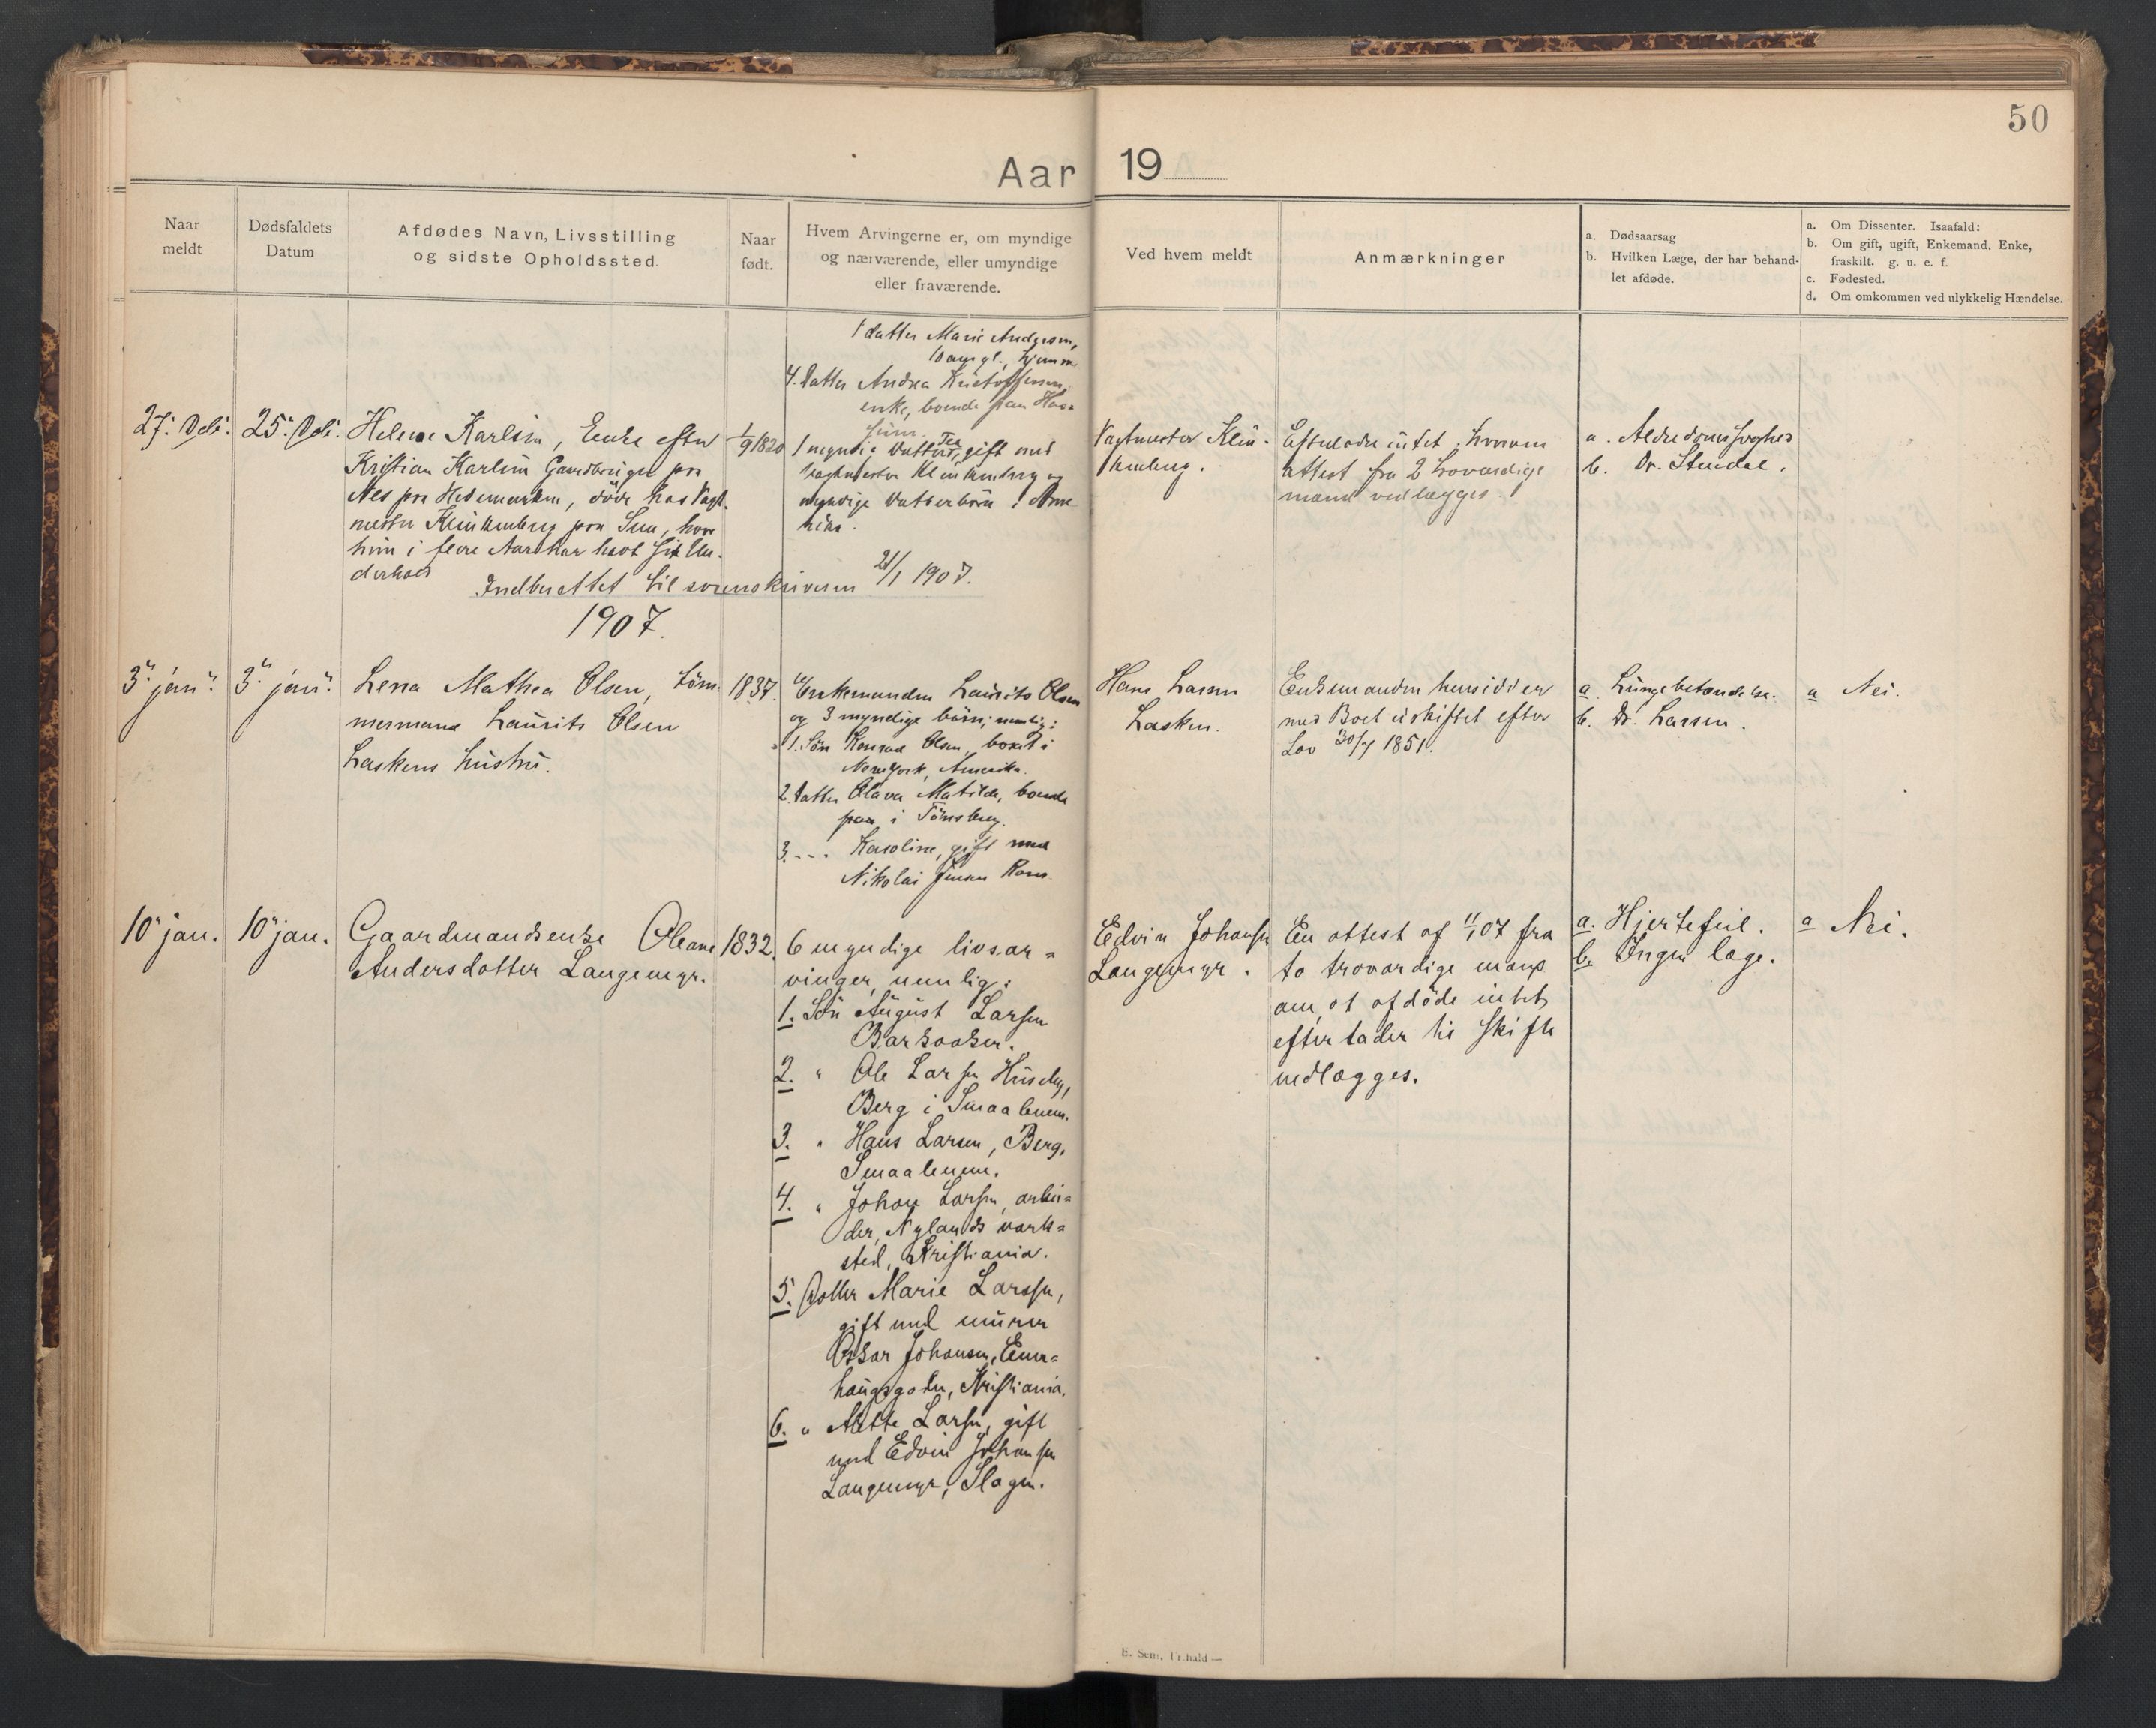 50
Aar 19
Naar meldt
Dødsfaldets Datum
Afdødes Navn, Livsstilling
og sidste Opholdssted.
Naar født.
Hvem Arvingerne er, om myndige
og nærværende, eller umyndige
eller fraværende.
Ved hvem meldt
Anmærkninger
a. Dødsaarsag
b. Hvilken Læge, der har behand-
let afdøde.
a. Om Dissenter. Isaafald:
b. Om gift, ugift, Enkemand, Enke,
fraskilt. g. u. e. f.
c. Fødested.
d. Om omkommen ved ulykkelig Hændelse.
1 datter Marie Andersen,
10 aar gl., hjemme
4. Datter Andrea Kristoffersen,
enke, boende paa
27. Deb. 25. Deb.
Helene Karlsen, Enke efter
Kristian Karlsen Gaardbruger paa
Nes paa Hedemarken, døde hos Vagt-
mester Klinkenberg paa Sem, hvor
hun i flere Aar har havt sit Un-
derhold
1/9 1820
1 myndig Datter, gift med
Vagtmester Klinkenberg og
myndige Datterbørn i Ame-
rika.
Vagtmester Klin-
kenberg.
Efterlader intet, hvorom
attest fra 2 troværdige
mænd vedlægges.
a. Alderdomssvaghed
b. Dr. Stendal.
Indberettet til sorenskriveren 21/1 1907.
1907.
3" jan". 3" jan".
Lena Mathea Olsen, Tøm-
mermand Laurits Olsen
Laskens hustru.
1837.
Enkemanden Laurits Olsen
og 3 myndige børn; nemlig:
1. Søn Konrad Olsen, bosat i
New York, Amerika.
2. Datter Olava Matilde, boende
paa i Tönsberg.
3. --- Karoline, gift med
Nikolai Jensen
Hans Larsen
Lasken.
Enkemanden hensidder
med Boet uskiftet efter
Lov 30/7 1851.
a. Lungebetændelse.
b. Dr. Larsen.
a Nei.
10" jan. 10" jan.
Gaardmandsenke Oleane
Andersdatter Langemyr.
1832.
6 myndige livsar-
vinger, nemlig:
1. Søn August Larsen
Barkaaker.
2. " Ole Larsen Huseby,
Berg i Smaalenene.
3. " Hans Larsen, Berg,
Smaalenene.
4. " Johan Larsen, arbei-
der, Nylands værk-
sted, Kristiania.
5. Datter Marie Larsen,
gift med murer
Oskar Johansen, Ener-
haugsgaten, Kristiania.
6. " Mette Larsen, gift
med Edvin Johansen
Langemyr, Slagen.
Edvin Johansen
Langemyr.
En attest af 11/1 07 fra
to troværdige mænd
om, at afdöde intet
efterlader til skifte
vedlægges.
a. Hjertefeil.
b. Ingen læge.
a Nei.
E. Sem, Fr.hald —